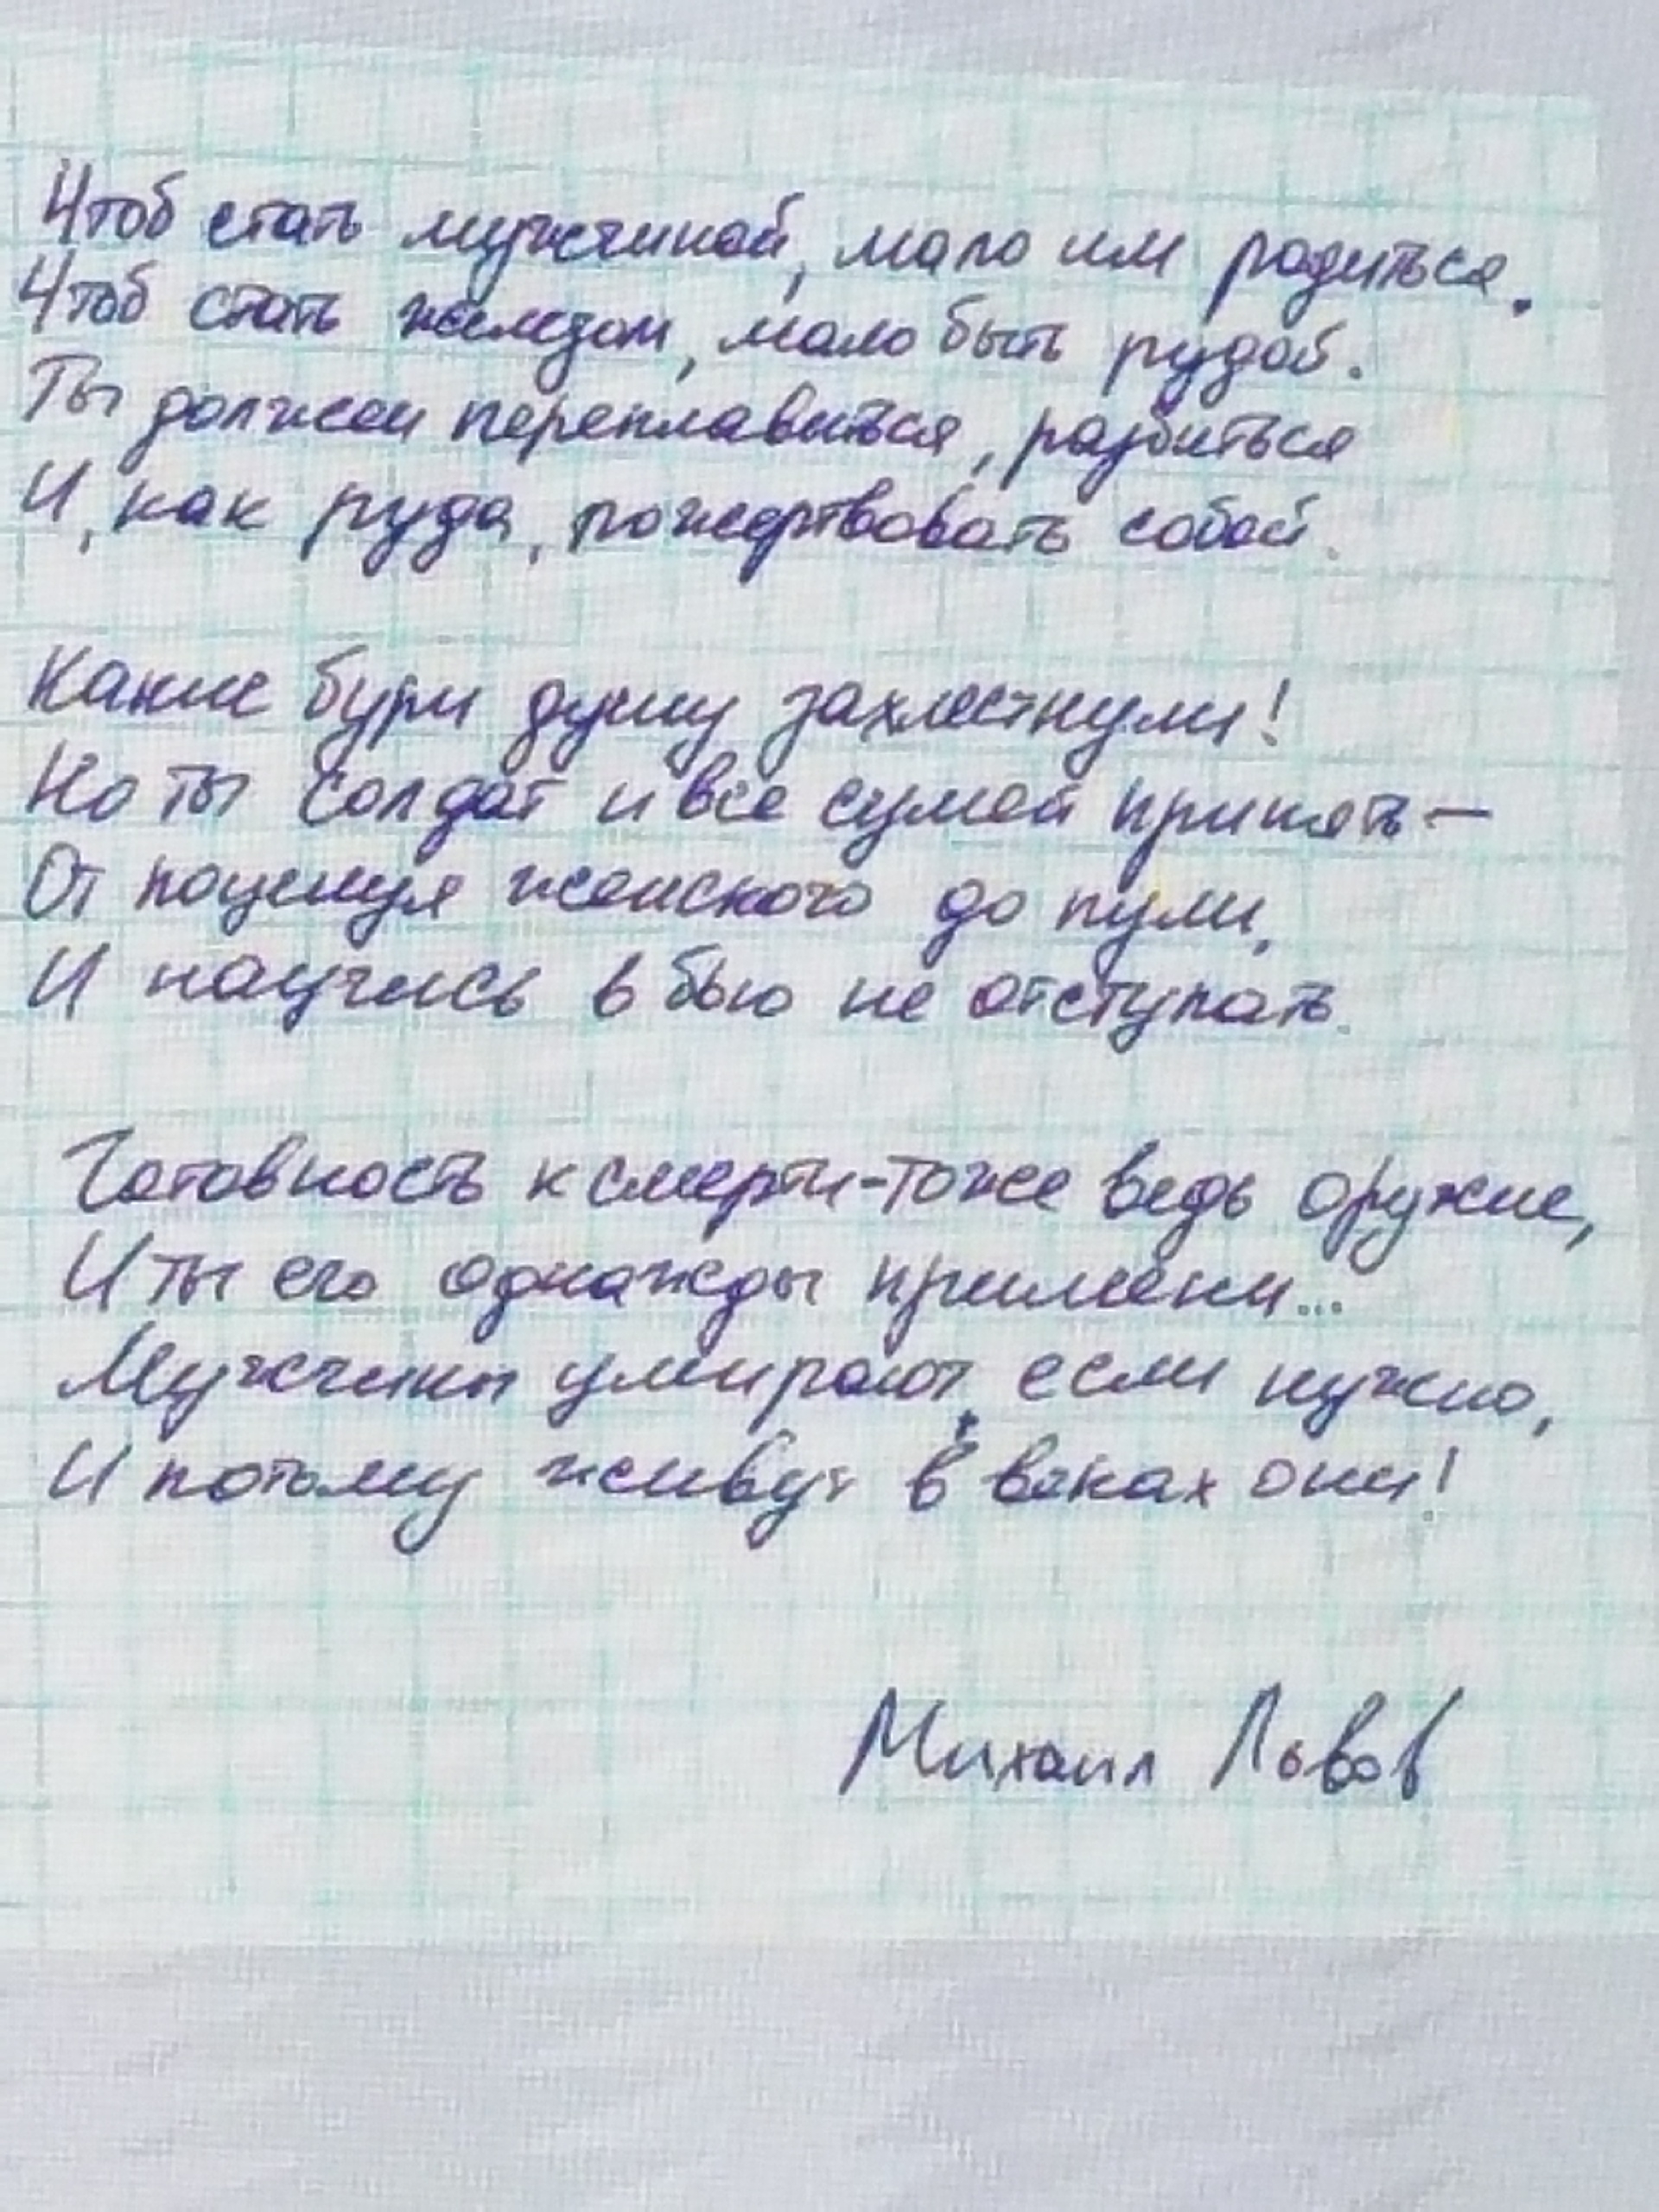 Чтоб стать мужчиной, мало им родиться.
Чтоб стать железом, мало быть рудой.
Ты должен переплавиться, разбиться
И, как руда, пожертвовать собой.
Какие бури душу захлестнули!
Но ты солдат и все сумей принять —
От поцелуя женского до пули,
И научись в бою не отступать.
Готовность к смерти - тоже ведь оружие,
И ты его однажды примени...
Мужчины умирают, если нужно,
И потому живут в веках они!
Михаил Львов